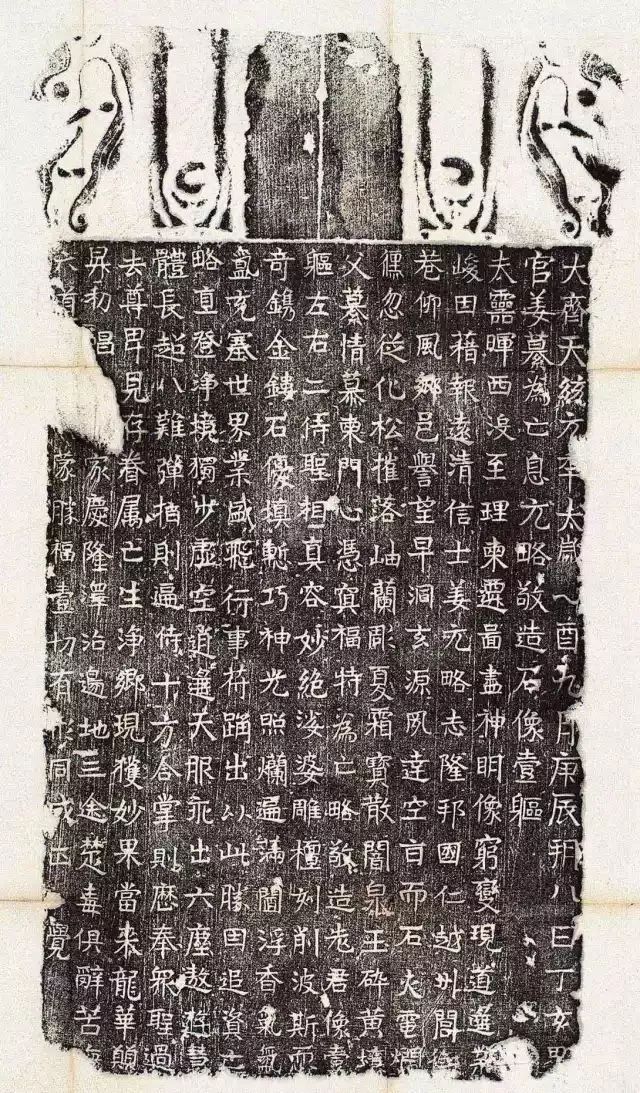 大齊天統元年太歲乙酉九月庚辰朔八日丁亥男
官姜纂為亡息元略敬造石像壹軀
夫靈暉西沒至理東遷啚盡神明像窮變現道遙
峻因藉報遠清信士姜元略志隆邦國仁越州閭
巷仰風鄉邑譽望早洞玄源夙達空旨而石火電燭
儵忽從化松摧落岫蘭彫夏霜寶散闇泉玉碎黃壤
父纂情慕東門心憑冥福特為亡略敬造老君像壹
軀左右二侍聖相真容妙絕娑婆雕檀刻削波斯而
奇鐫金鏤石優填慙巧神光照爛遍滿閻浮香氣氤
氳充塞世界業盛飛行事符踊出以此勝因追資亡
略直登淨境獨步虛空逍遙天服乘出六塵遨遊慧
體長超八難彈指則遍侍十方合掌則歷奉眾聖過
去尊卑見存眷屬亡生淨鄉現獲妙果當來龍華願
昇初唱家慶隆澤洽邊地三途楚毒俱辭苦海
六道蒙勝福壹切有形同成正覺